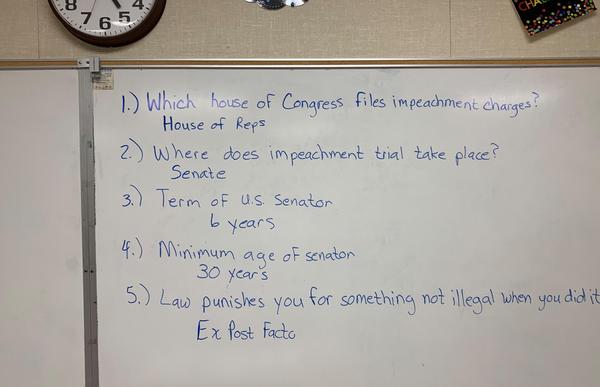 8 7 6 5 4
CHA
1.) Which house of Congress files impeachment charges?
House of Reps
2.) Where does impeachment trial take place?
Senate
3.) Term of U.S. Senator
6 years
4.) Minimum age of senator
30 years
5.) Law punishes you for something not illegal when you did it
Ex Post Facto